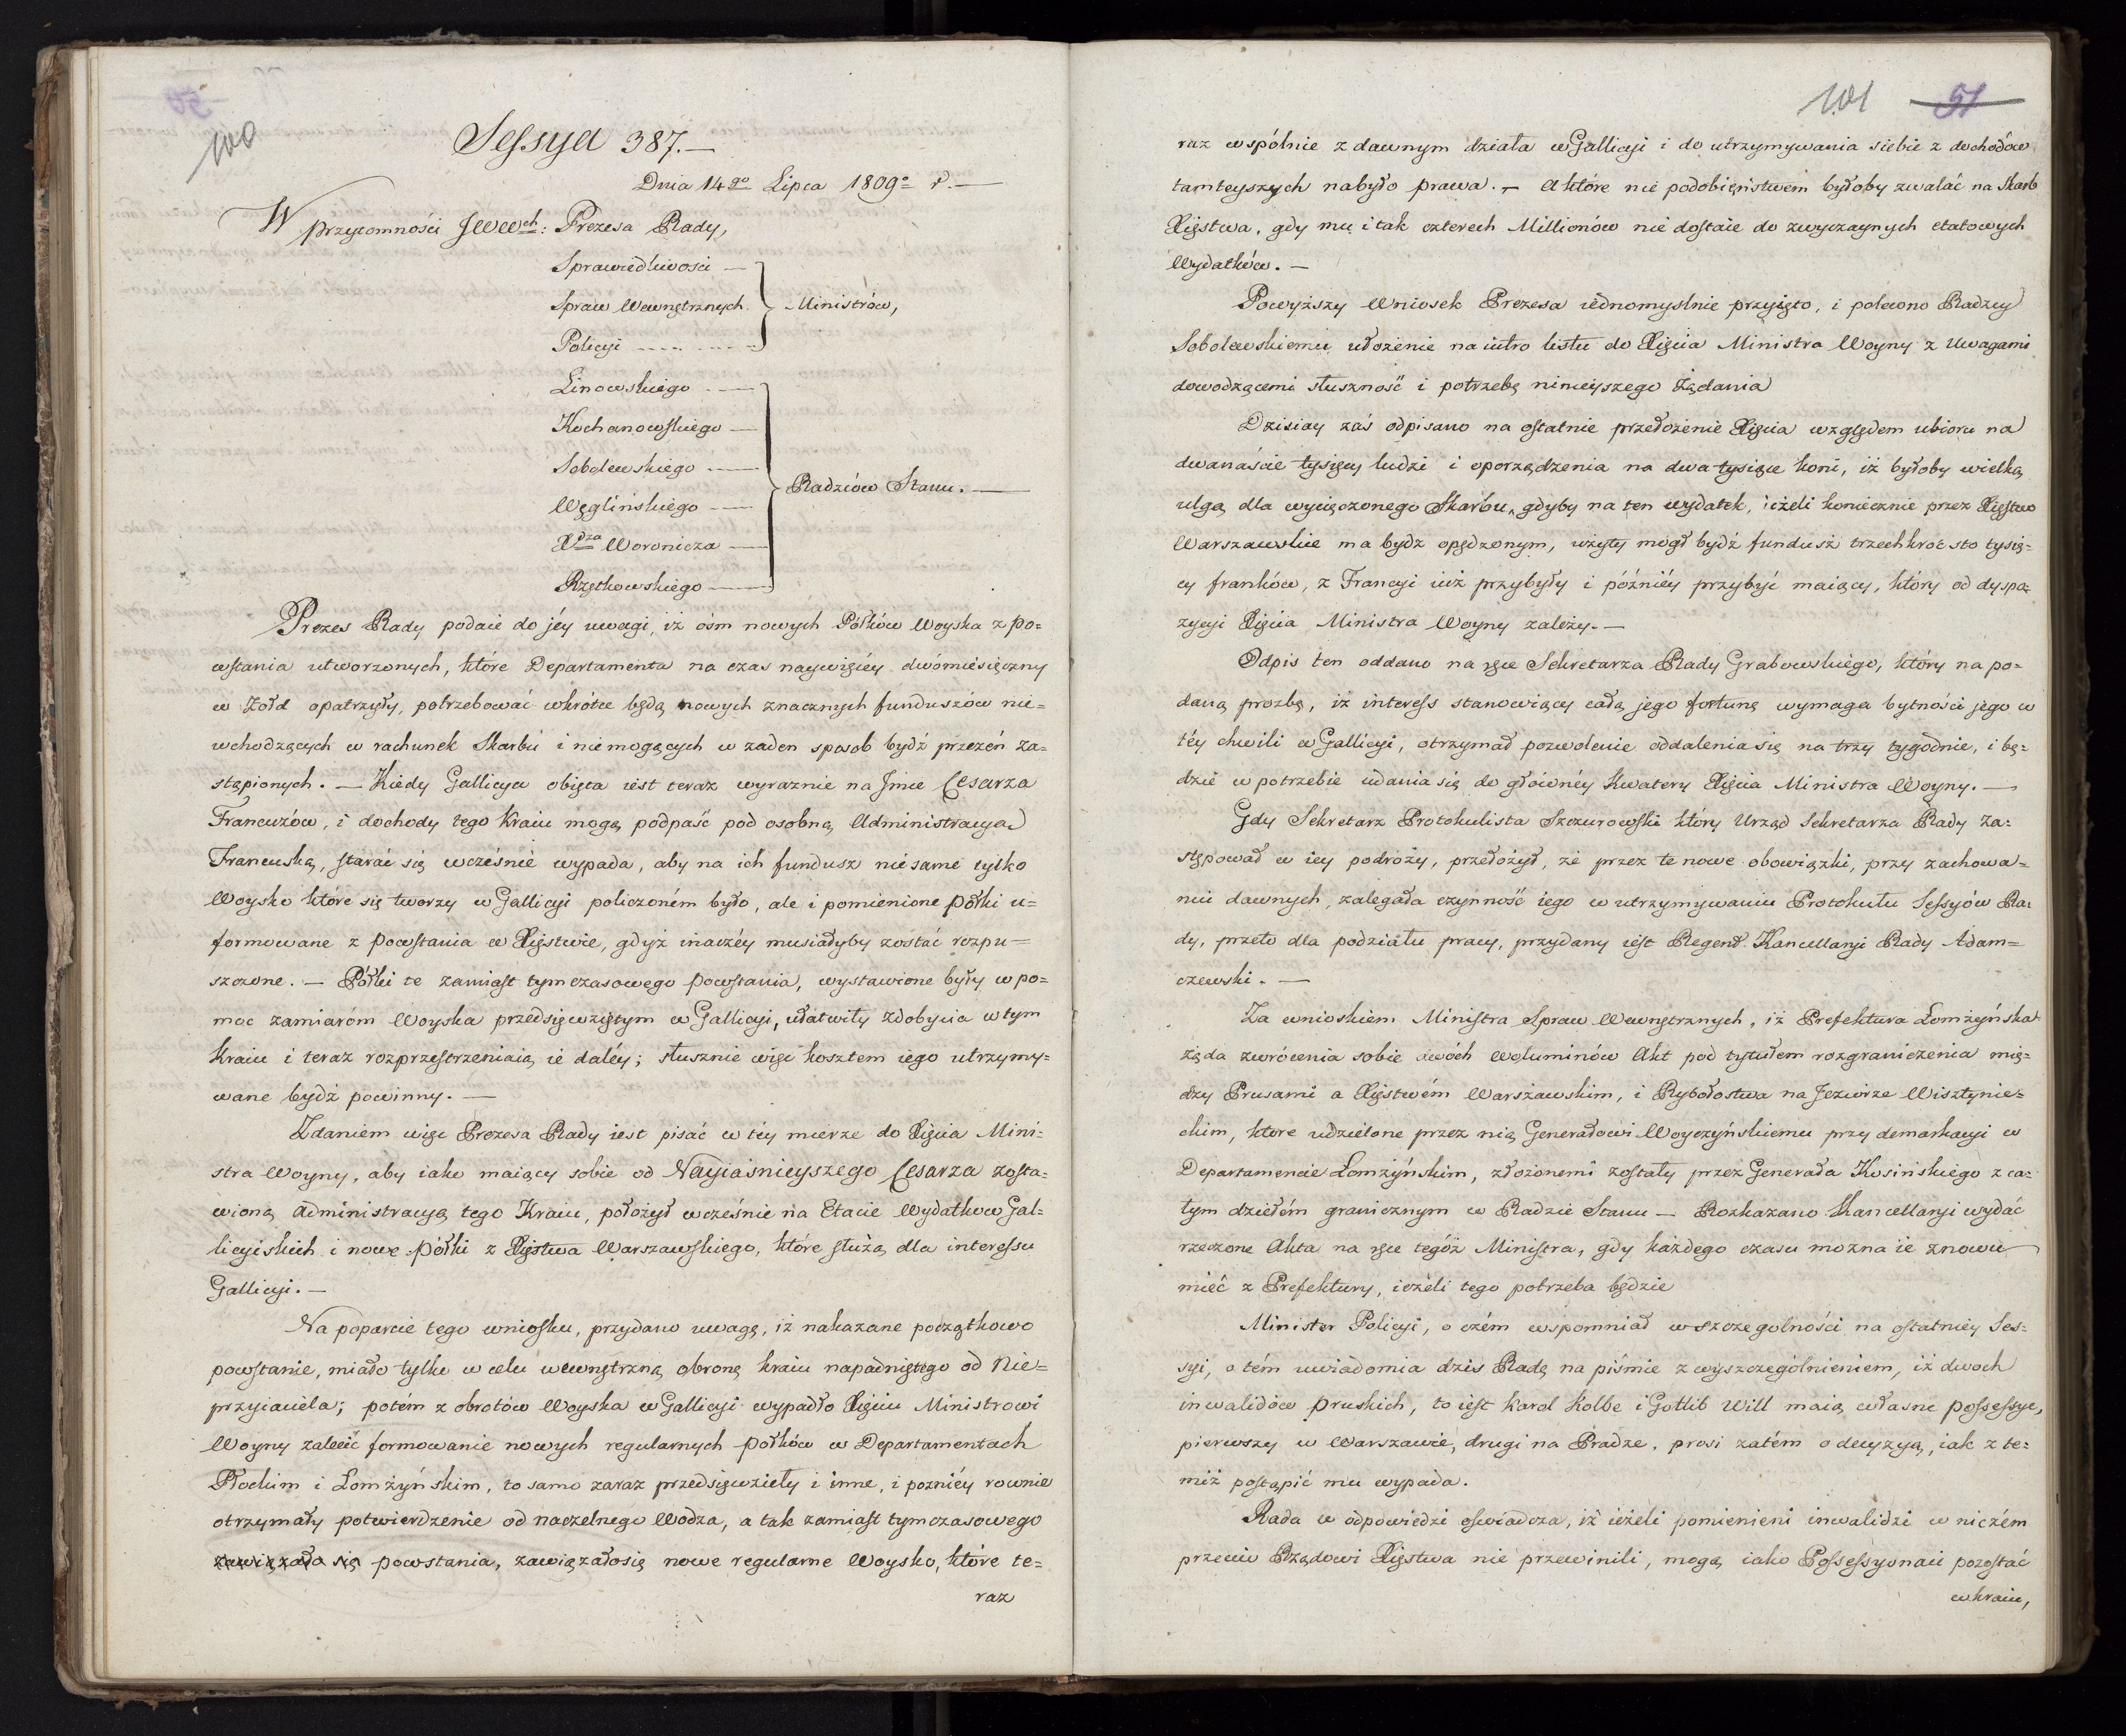 100
Sessya 387.—
Dnia 14go Lipca 1809o r.—
W przytomności JWWch: Prezesa Rady,
Sprawiedliwości —
Spraw Wewnętrznych } Ministrów,
Policyi ---- ----
Linowskiego —
Kochanowskiego —
Sobolewskiego —
Węglińskiego — } Radzców Stanu.—
Xdza Woronicza —
Rzętkowskiego —
Prezes Rady podaie do jéy uwagi, iż ośm nowych Półków Woyska z po=
wstania utworzonych, które Departamenta na czas naywięcéy dwómiesięczny
w Żołd opatrzyły, potrzebować wkrótce będą nowych znacznych funduszów nie=
wchodzących w rachunek Skarbu i niemogących w żaden sposob bydź przezeń za=
stąpionych. — Kiedy Gallicya obięta iest teraz wyraznie na Jmie Cesarza
Francuzów, i dochody tego Kraiu mogą podpaść pod osobną Administracyą
Francuską, starać się wcześnie wypada, aby na ich fundusz nie samé tylko
Woysko które się tworzy w Gallicyi policzoném było, ale i pomienione półki u=
formowane z powstania w Xięstwie, gdyż inaczéy musiałyby zostać rozpu=
szczone. — Półki te zamiast tymczasowego powstania, wystawione były w po=
moc zamiaróm Woyska przedsięwziętym w Gallicyi, ułatwiły zdobycia w tym
Kraiu i teraz rozprzestrzeniaią ié daléy; słusznie więc kosztem iego utrzymy=
wane bydź powinny. —
Zdaniem więc Prezesa Rady iest pisać w téy mierze do Xięcia Mini=
stra Woyny, aby iako maiący sobie od Nayiaśnieyszego Cesarza zosta=
wioną Administracyą tego Kraiu, położył wcześnie na Etacie Wydatkow Gal=
licyiskich i nowe półki z Xięstwa Warszawskiego, które służą dla interessu
Gallicyi. —
Na poparcie tego wniosku, przydano uwagę, iż nakazane początkowo
powstanie, miało tylko w celu wewnętrzną obronę kraiu napadniętego od Nie=
przyiaciela; potém z obrotów Woyska w Gallicyi wypadło Xięciu Ministrowi
Woyny zalecić formowanie nowych regularnych półków w Departamentach
Płockim i Łomżyńskim, to samo zaraz przedsięwzięły i inne, i pozniéy rownie
otrzymały potwierdzenie od naczelnego Wodza, a tak zamiast tymczasowego
zawiązało się powstania, zawiązałosię nowe regularne Woysko, które te=
raz
101 51
raz wspólnie z dawnym działa w Gallicyi i do utrzymywania siebie z dochodów
tamteyszych nabyło prawa. — A które nié podobięństwem byłoby zwalać na Skarb
Xięstwa, gdy mu i tak czterech Millionów nie dostaie do zwyczaynych etatowych
Wydatków. —
Powyższy Wniosek Prezesa iednomyslnie przyięto, i polecono Radzcy
Sobolewskiemu ułożenie na iutro listu do Xięcia Ministra Woyny z Uwagami
dowodzącemi słuszność i potrzebę ninieyszego Żądania
Dzisiay zaś odpisano na ostatnie przełożenie Xięcia względem ubioru na
dwanaście tysięcy ludzi i oporządzenia na dwa tysiące koni, iż byłoby wielką
ulgą dla wycięczonego Skarbu, gdyby na ten wydatek, ieżeli koniecznie przez Xięstwo
Warszawskie ma bydź opędzonym, użyty mógł bydź fundusz trzechkroć sto tysię=
cy franków, z Francyi iuż przybyły i późniéy przybyć maiący, który od dyspo=
zycyi Xięcia Ministra Woyny zależy. —
Odpis ten oddano na ręce Sekretarza Rady Grabowskiégo, który na po=
daną prozbę, iż interess stanowiący całą jego fortunę wymaga bytności jego w
téy chwili w Gallicyi, otrzymał pozwolenie oddalenia się na trzy tygodnie, i bę=
dzie w potrzebie udania się do głównéy kwatery Xięcia Ministra Woyny. —
Gdy Sekretarz Protokulista Szczurowski który Urząd Sekretarza Rady za=
stępował w iey podroży, przełożył, że przez te nowe obowiązki, przy zachowa=
niu dawnych, zalegała czynność iego w utrzymywaniu Protokułu Sessyów Ra=
dy, przeto dla podziału pracy, przydany iest Regent Kancellaryi Rady Adam=
czewski. —
Za wnioskiem Ministra Spraw Wewnętrznych, iż Prefektura Łomżyńska
żąda zwrócenia sobie dwóch woluminów Akt pod tytułem rozgraniczenia mię=
dzy Prusami a Xięstwém Warszawskim, i Rybołostwa na Jeziorze Wisztynie=
ckim, które udzielone przez nią Generałowi Woyczyńskiemu przy demarkacyi w
Departamencie Łomżyńskim, złożonemi zostały przez Generała Kosińskiego z ca=
łym dziełém granicznym w Radzie Stanu — Rozkazano Kancellaryi wydać
rzeczone Akta na ręce tegóż Ministra, gdy każdego czasu można ie znowu
mieć z Prefektury, ieżeli tego potrzeba będzie
Minister Policyi, o czém wspomniał w szczegolności na ostatniey Ses=
syi, o tém uwiadomia dziś Radę na piśmie z wyszczególnieniem, iż dwoch
inwalidów pruskich, to iest Karol Kolbe i Gotlib Will maią własne possessye,
pierwszy w Warszawie, drugi na Pradze, prosi zatém o decyzyą, iak z te=
miż postąpić mu wypada.
Rada w odpowiedzi oświadcza, iż ieżeli pomienieni inwalidzi w niczém
przeciw Rządowi Xięstwa nie przewinili, mogą iako Possessyonaci pozostać
w kraiu,